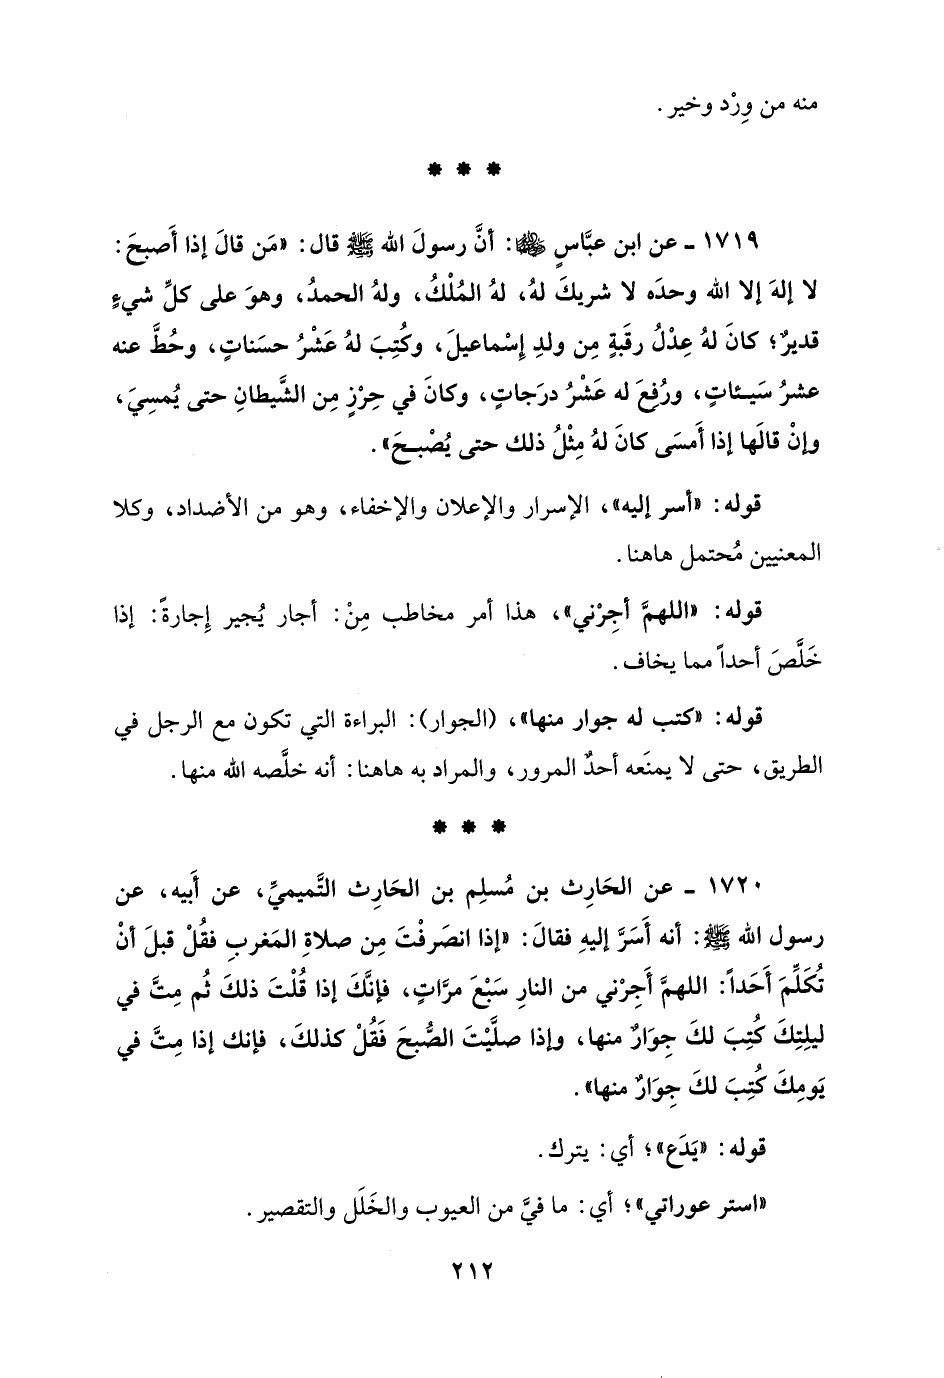 منه من وِرْد وخير.
* * *
١٧١٩ ـ عن ابن عبَّاسٍ ﵄: أنَّ رسولَ الله ﷺ قال: «مَن قالَ إذا أَصبحَ:
لا إلهَ إلا الله وحدَه لا شريكَ لهُ، لهُ المُلْكُ، ولهُ الحمدُ، وهوَ على كلِّ شيءٍ
قديرٌ؛ كانَ لهُ عِدْلُ رقَبةٍ مِن ولدِ إسْماعيلَ، وكُتِبَ لهُ عَشْرُ حسَناتٍ، وحُطَّ عنه
عشرُ سَيـئاتٍ، ورُفِعَ له عَشْرُ درَجاتٍ، وكانَ في حِرْزٍ مِن الشَّيطانِ حتى يُمسِيَ،
وإنْ قالَها إذا أَمسَى كانَ لهُ مِثْلُ ذلك حتى يُصْبـحَ».
قوله: «أسر إليه»، الإسرار والإعلان والإخفاء، وهو من الأضداد، وكلا
المعنيين مُحتمل هاهنا.
قوله: «اللهمَّ أجِرْني»، هذا أمر مخاطب مِنْ: أجار يُجير إِجارةً: إذا
خَلَّصَ أحداً مما يخاف.
قوله: «كتب له جوار منها»، (الجوار): البراءة التي تكون مع الرجل في
الطريق، حتى لا يمنَعه أحدٌ المرور، والمراد به هاهنا: أنه خلَّصه الله منها.
* * *
١٧٢٠ ـ عن الحَارِث بن مُسلِم بن الحَارِث التَّميميِّ، عن أَبيه، عن
رسول الله ﷺ: أنه أسَرَّ إليهِ فقالَ: «إذا انصَرفْتَ مِن صلاةِ المَغربِ فقُلْ قبلَ أنْ
تُكَلِّمَ أَحَداً: اللهمَّ أَجِرْني من النارِ سَبْعَ مرَّاتٍ، فإنَّكَ إذا قُلْتَ ذلكَ ثُم مِتَّ في
ليلتِكَ كُتِبَ لكَ جِوَارٌ منها، وإذا صلَّيْتَ الصُّبحَ فَقُلْ كذلكَ، فإنك إذا مِتَّ في
يَومِكَ كُتِبَ لكَ جِوَارٌ منها».
قوله: «يَدَع»؛ أي: يترك.
«استر عوراتي»؛ أي: ما فيَّ من العيوب والخَلَل والتقصير.
٢١٢